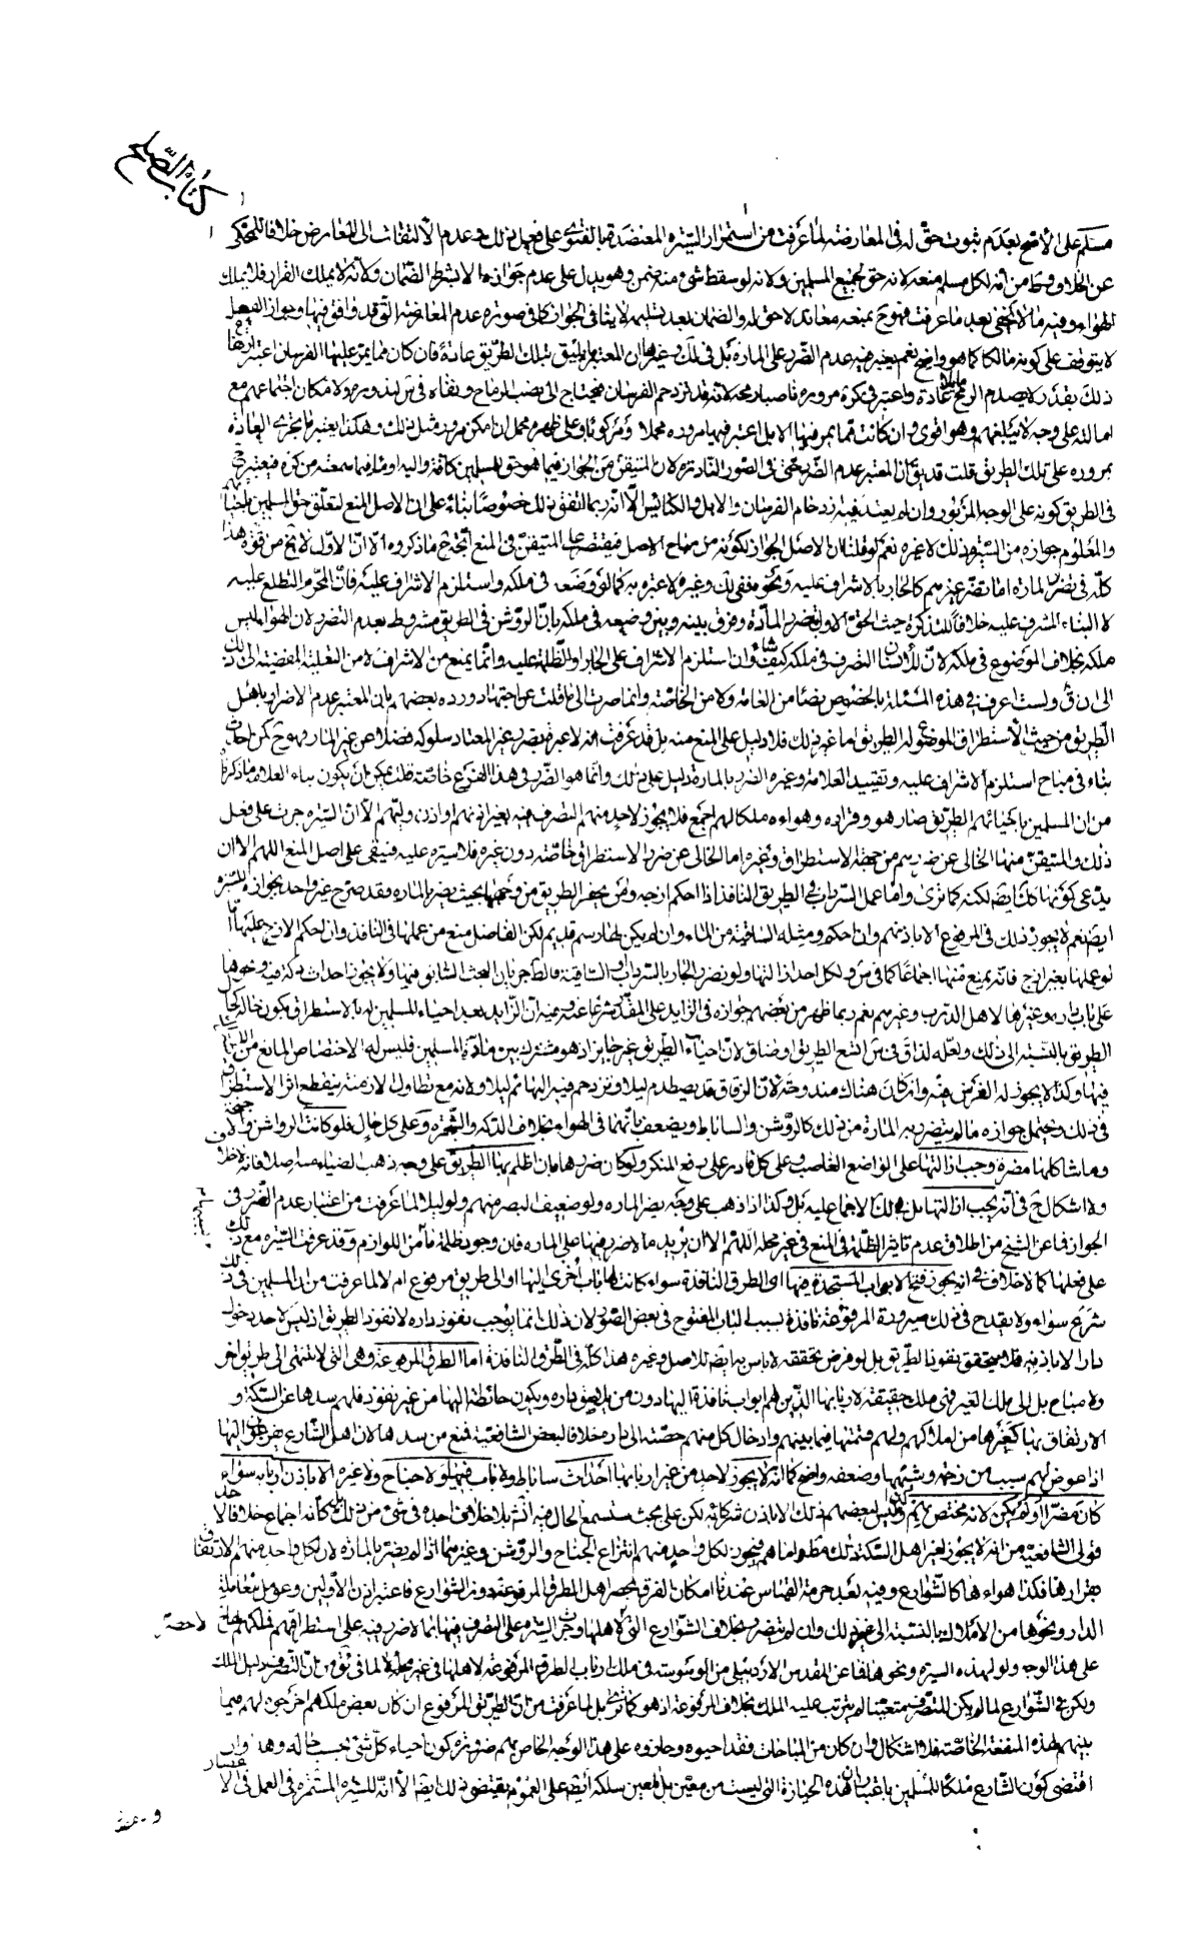 كتاب الصلح
مسلم على الأصح بعدم ثبوت حق له فى المعارضة لما عرفت من استمرار السيرة المعتضدة بالفتوى على فعل ذلك وعدم الالتفات الى المعارض خلافا للمحكى
عن الخلاف وط من أنه لكل مسلم منعه لأنه حق لجميع المسلمين ولأنه لو سقط شئ منه ضمن وهو يدل على عدم جوازه الا بشرط الضمان ولأنه لا يملك القرار فلا يملك
الهواء وفيه ما لا يخفى بعد ما عرفت فهو ح بمنعه معاند لا حق له والضمان بعد تسليمه لا ينافى الجواز كما فى صورة عدم المعارضة التى قد وافق فيها وجواز الفعل
لا يتوقف على كونه مالكا كما هو واضح نعم يعتبر فيه عدم الضرر على المارة بل فى لك وغيرها ان المعتبر ما يليق بتلك الطريق عادة فان كان مما يمر عليها الفرسان اعتبر ارتفاع
ذلك بقدر لا يصدم الرمح مائلا عادة واعتبر فى كرة مروره ناصبا رمحه لأنه قد تزدحم الفرسان فيحتاج الى نصب الرماح ونفاه فى س لندوره ولا مكان اجتماعهم مع
امالته على وجه لا يبلغهم وهو اقوى وان كانت مما يمر فيها الابل اعتبر فيها مروره محملا ومركوبا وعلى ظهره محمل ان امكن مرور مثل ذلك وهكذا يعتبر ما يجرى العادة
بمروره على تلك الطريق قلت قد يق ان المعتبر عدم الضرر حتى فى الصور النادرة لان المتيقن من الجواز فيما هو حق للمسلمين كافة
فى الطريق كونه على الوجه المزبور وان لم يعتد فيه ازدحام الفرسان والابل والكنائس الا انه ربما اتفق ذلك خصوصا بناء على ان الاصل المنع لتعلق حق المسلمين
والمعلوم جوازه من السيرة ذلك لا غيره نعم لو قلنا ان الاصل الجواز لكونه من مباح الاصل فيقتصر على المتيقن فى المنع اتجه ح ما ذكروه الا ان الاول لا يخ من قوة هذا
كله فى تضرر المارة اما تضرر غيرهم كالجار بالاشراف عليه ونحوه ففى لك وغيره لا عبرة به كما لو وضع فى ملكه واستلزم الاشراف عليه فان المحرم التطلع عليه
لا البناء المشرف عليه خلافا للتذكرة حيث الحق الاول بضرر المارة وفرق بينه وبين وضعه فى ملكه بان الروشن فى الطريق مشروط بعدم التضرر لان الهواء ليس
ملكه بخلاف الموضوع فى ملكه لان للانسان التصرف فى ملكه كيف شاء وان استلزم الاشراف على الجار او الظلمة عليه وانما يمنع من الاشراف لا من التعلية المقتضية الى ذلك
الى ان ق ولست اعرف فى هذه المسئلة بالخصوص نصا من العامة ولا من الخاصة وانما صرت الى ما قلت عن اجتهاد ورده بعضهم بان المعتبر عدم الاضرار باهل
الطريق من حيث الاستطراق الموضوع له الطريق اما غير ذلك فلا دليل على المنع منه بل قد عرفت انه لا عبرة بضرر غير المعتاد سلوكه فضلا عن غير المار فهو ح كمن احدث
بناء فى مباح استلزم الاشراف عليه وتقييد العلامة وغيره الضرر بالمارة دليل على ذلك وانما هو الضرر فى هذا الفرع خاصة قلت يمكن ان يكون بناء العلامة ما ذكرنا
من ان المسلمين باحيائهم الطريق صار هو وقراره وهواءه ملكا لهم اجمع فلا يجوز لاحد منهم التصرف فيه بغير اذنهم او اذن وليهم الا ان السيرة جرت على فعل
ذلك والمتيقن منها الخالى عن ضررهم من جهة الاستطراق وغيره اما الخالى عن ضرر الاستطراق خاصة دون غيره فلا سيرة عليه فيبقى على اصل المنع اللهم الا ان
يدعى كونها كك ايضا لكنه كما ترى واما عمل السرداب فى الطريق النافذ اذا احكم ازجه ولم يحفر الطريق من وجهها بحيث يضر بالمارة فقد صرح غير واحد بجوازه للسيرة
ايضا نعم لا يجوز ذلك فى المرفوع الا باذنهم وان احكم ومثله الساقية من الماء وان لم يكن لها رسم قديم لكن الفاضل منع من عملها فى النافذ وان احكم الازج عليها اما
لو عملها بغير ازج فانه يمنع منها اجماعا كما فى س ولكل احد ازالتها ولو تضرر الجار بالسرداب والساقية فالظ جريان البحث السابق فيها ولا يجوز احداث دكة فيه ونحوها
على باب داره وغيرها لاهل الدرب وغيرهم نعم ربما ظهر من بعضهم جوازه فى الزايد على المقدر شرعا
الطريق بالنسبة الى ذلك ولعله لذا ق فى س اتسع الطريق او ضاق لان احياء الطريق غير جايز اذ هو مشترك بين مارة المسلمين فليس له الاختصاص المانع من
فيها وكذا لا يجوز له الغرس فيه وان كان هناك مندوحة لان الزقاق قد يصطدم ليلا وتزدحم فيه البهائم ليلا ولانه مع تطاول الازمنة ينقطع اثر الاستطراق
فى ذلك ويحتمل جوازه ما لم يتضرر به المارة من ذلك كالروشن والساباط ويضعف بانهما فى الهواء بخلاف الدكة والشجرة وعلى كل حال فلو كانت الرواشن والاجنحة
وما شاكلها مضرة وجب ازالتها على الواضع الغاصب وعلى كل قادر على رفع المنكر ولو كان ضررها بان اظلم بها الطريق على وجه ذهب الضياء منه اصلا فانه لا خلاف
ولا اشكال ح فى انه يجب ازالتها بل فى لك الاجماع عليه بل وكذا اذا ذهب على وجه يضر المارة ولو ضعيف البصر منهم ولو ليلا لما عرفت من اعتبار عدم الضرر فى
الجواز فما عن الشيخ من اطلاق عدم تاثير الظلمة فى المنع فى غير محله اللهم الا ان يريد ما لا ضرر فيها على المارة فان وجود ظلمة ما من اللوازم وقد عرفت السيرة مع ذلك
على فعلها كما لا خلاف فى انه يجوز فتح الابواب المستجدة فيها اى الطرق النافذة سواء كانت لها باب اخرى اليها او الى طريق مرفوع ام لا لما عرفت من ان المسلمين فى ذلك
شرع سواء ولا يقدح فى ذلك صيرورة المرفوعة نافذة بسبب الباب المفتوح فى بعض الصور لان ذلك انما يوجب نفوذ داره لا نفوذ الطريق اذ ليس لاحد دخول
داره الا باذنه فلا يتحقق نفوذ الطريق بل لو فرض تحققه لا باس به ايضا للاصل وغيره هذا كله فى الطرق النافذة اما الطرق المرفوعة وهى التى لا تنتهى الى طريق اخر
ولا مباح بل الى ملك الغير فهى ملك حقيقة لاربابها الذين لهم ابواب نافذة اليها دون من يلاصق داره ويكون حائطه اليها من غير نفوذ فلهم سدها عن السكة و
الارتفاق بها كغيرها من املاكهم ولهم قسمتها فيما بينهم وادخال كل منهم حصته الى داره خلافا لبعض الشافعية فمنع من سدها لان اهل الشارع يفزعون اليها
اذا عرض لهم سبب من زحمة وشبهها وضعفه واضح كما انه لا يجوز لاحد من غير اربابها احداث ساباط ولا باب فيها ولا جناح ولا غيره الا باذن اربابه سواء
كان مضرا او لم يكن لانه مختص بهم وكذا ليس لبعضهم ذلك الا باذن شركائه لكن على بحث ستسمع الحال فيه انش بلا خلاف اجده فى شئ من ذلك بل كأنه اجماع خلافا لاحد
قولى الشافعية من انه لا يجوز لغير اهل السكة ذلك مطلقا اما هم فيجوز لكل واحد منهم اشراع الجناح والروشن وغيرهما اذا لم يضر بالمارة لان لكل واحد منهم الارتفاق
بقرارها فكذا هواءها كالشوارع وفيه بعد حرمة القياس عندنا امكان الفرق بحصر اهل الطرق المرفوعة دون الشوارع فاعتبر اذن الاولين وعومل معاملة
الدار ونحوها من الاملاك بالنسبة الى غير ذلك وان لم يتضرر بخلاف الشوارع التى لاهلها وجرت السيرة على التصرف فيها بما لا ضرر فيه على استطراقهم فملكهم لها
لاحصة
على هذا الوجه ولو لهذه السيرة ونحوها فما عن المقدس الاردبيلى من الوسوسة فى ملك ارباب الطرق المرفوعة لاهلها فى غير محله
ولكن فى الشوارع لما لم يكن المتصرف متعينا لم يترتب عليه الملك بخلاف المرفوعة اذ هو كما ترى بل لما عرفت من ان الطريق المرفوع ان كان بعض ملكهم اخرجوه لهم فيما
بينهم لهذه المنفعة الخاصة فلا اشكال وان كان من المباحات فقد احيوه وحازوه على هذا الوجه الخاص بهم ضرورة كون احياء كل شئ بحسب حاله وهذا وان
اقتضى كون الشارع ملكا للمسلمين باعتبار ان هذه الحيازة التى ليست من معين بل لمعين سلكه ايضا على العموم يقتضى ذلك ايضا الا انه للسيرة المستمرة فى العمل فى الاعصار
و عند